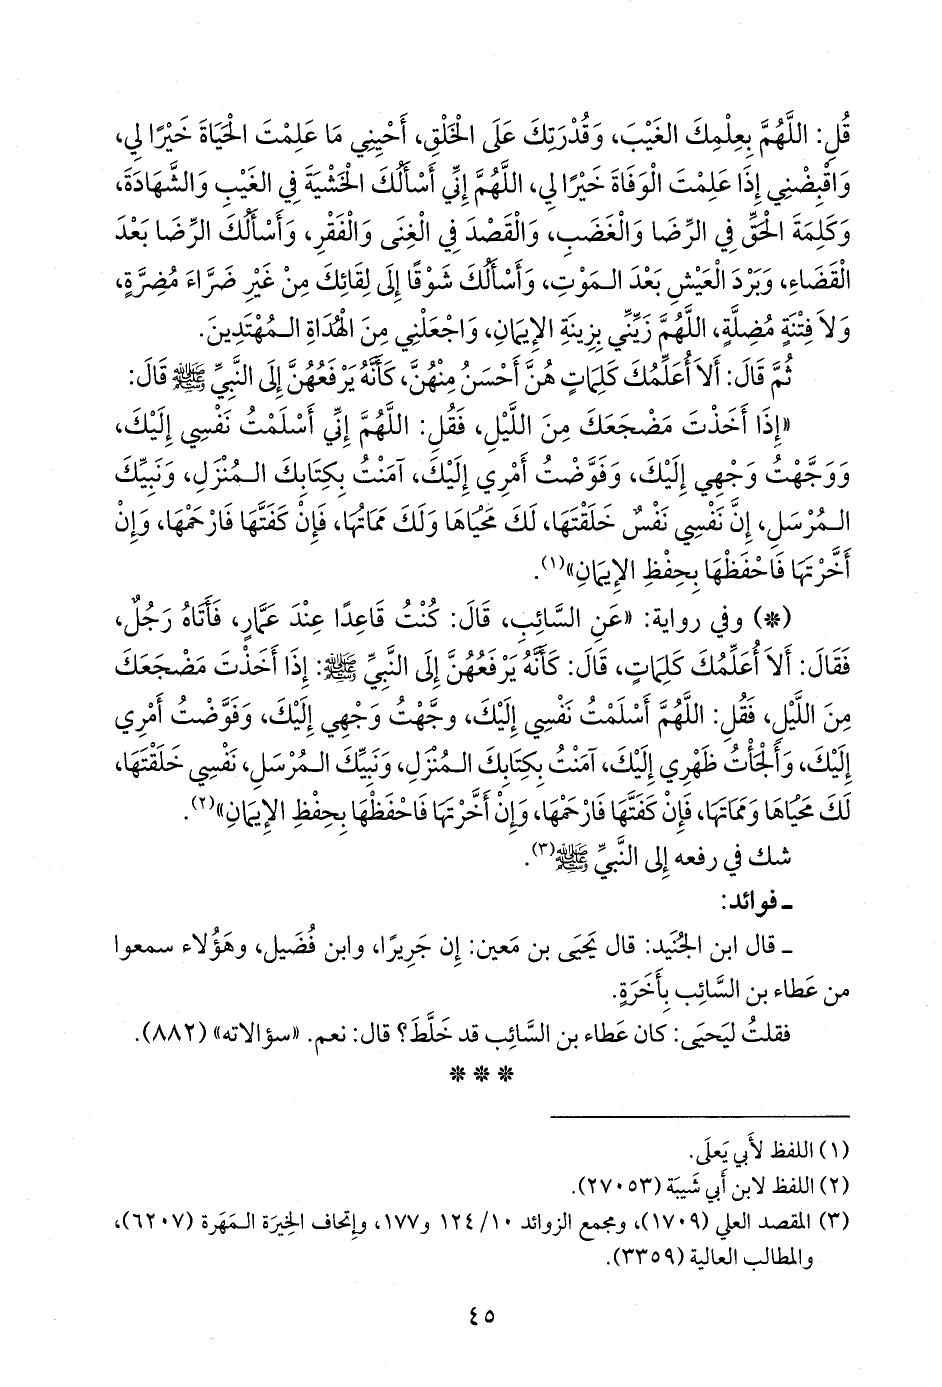 قُل: اللَّهُمَّ بِعِلمِكَ الغَيْبَ، وَقُدْرَتِكَ عَلَى الْخَلْقِ، أَحْيِنِي مَا عَلِمْتَ الْحَيَاةَ خَيْرًا لِي،
وَاقْبِضْنِي إِذَا عَلِمْتَ الْوَفَاةَ خَيْرًا لِي، اللَّهُمَّ إِنِّي أَسْأَلُكَ الْخَشْيَةَ فِي الغَيْبِ وَالشَّهَادَةَ،
وَكَلِمَةَ الْحَقِّ فِي الرِّضَا وَالْغَضَبِ، وَالْقَصْدَ فِي الْغِنَى وَالْفَقْرِ، وَأَسْأَلُكَ الرِّضَا بَعْدَ
الْقَضَاءِ، وَبَرْدَ الْعَيْشِ بَعْدَ الـمَوْتِ، وَأَسْأَلُكَ شَوْقًا إِلَى لِقَائِكَ مِنْ غَيْرِ ضَرَّاءَ مُضِرَّةٍ،
وَلاَ فِتْنَةٍ مُضِلَّةٍ، اللَّهُمَّ زَيِّنِّي بِزِينَةِ الإِيمَانِ، وَاجْعَلْنِي مِنَ الْهُدَاةِ الـمُهْتَدِينَ.
ثُمَّ قَالَ: أَلاَ أُعَلِّمُكَ كَلِمَاتٍ هُنَّ أَحْسَنُ مِنْهُنَّ، كَأَنَّهُ يَرْفَعُهُنَّ إِلَى النَّبِيِّ ﷺ قَالَ:
«إِذَا أَخَذْتَ مَضْجَعَكَ مِنَ اللَّيْلِ، فَقُلِ: اللَّهُمَّ إِنِّي أَسْلَمْتُ نَفْسِي إِلَيْكَ،
وَوَجَّهْتُ وَجْهِي إِلَيْكَ، وَفَوَّضْتُ أَمْرِي إِلَيْكَ، آمَنْتُ بِكِتَابِكَ الـمُنْزَلِ، وَنَبِيِّكَ
الـمُرْسَلِ، إِنَّ نَفْسِي نَفْسٌ خَلَقْتَهَا، لَكَ مَحْيَاهَا وَلَكَ مَمَاتُهَا، فَإِنْ كَفَتَّهَا فَارْحَمْهَا، وَإِنْ
أَخَّرْتَهَا فَاحْفَظْهَا بِحِفْظِ الإِيمَانِ»(١).
(*) وفي رواية: «عَنِ السَّائِبِ، قَالَ: كُنْتُ قَاعِدًا عِنْدَ عَمَّارٍ، فَأَتَاهُ رَجُلٌ،
فَقَالَ: أَلاَ أُعَلِّمُكَ كَلِمَاتٍ، قَالَ: كَأَنَّهُ يَرْفَعُهُنَّ إِلَى النَّبِيِّ ﷺ: إِذَا أَخَذْتَ مَضْجَعَكَ
مِنَ اللَّيْلِ، فَقُلِ: اللَّهُمَّ أَسْلَمْتُ نَفْسِي إِلَيْكَ، وَجَّهْتُ وَجْهِي إِلَيْكَ، وَفَوَّضْتُ أَمْرِي
إِلَيْكَ، وَأَلْجَأْتُ ظَهْرِي إِلَيْكَ، آمَنْتُ بِكِتَابِكَ الـمُنْزَلِ، وَنَبِيِّكَ الـمُرْسَلِ، نَفْسِي خَلَقْتَهَا،
لَكَ مَحْيَاهَا وَمَمَاتُهَا، فَإِنْ كَفَتَّهَا فَارْحَمْهَا، وَإِنْ أَخَّرْتَهَا فَاحْفَظْهَا بِحِفْظِ الإِيمَانِ»(٢).
شك في رفعه إِلى النَّبيِّ ﷺ(٣).
ـ فوائد:
ـ قال ابن الجُنَيد: قال يَحيَى بن مَعين: إِن جَرِيرًا، وابن فُضَيل، وهَؤُلاء سمعوا
من عَطاء بن السَّائِب بِأَخَرَةٍ.
فقلتُ ليَحيَى: كان عَطاء بن السَّائِب قد خَلَّطَ؟ قال: نعم. «سؤالاته» (٨٨٢).
* * *
(١) اللفظ لأَبي يَعلَى.
(٢) اللفظ لابن أَبي شَيبَة (٢٧٠٥٣).
(٣) المقصد العلي (١٧٠٩)، ومجمع الزوائد ١٠/ ١٢٤ و١٧٧، وإِتحاف الخِيرَة الـمَهَرة (٦٢٠٧)،
والمطالب العالية (٣٣٥٩).
٤٥